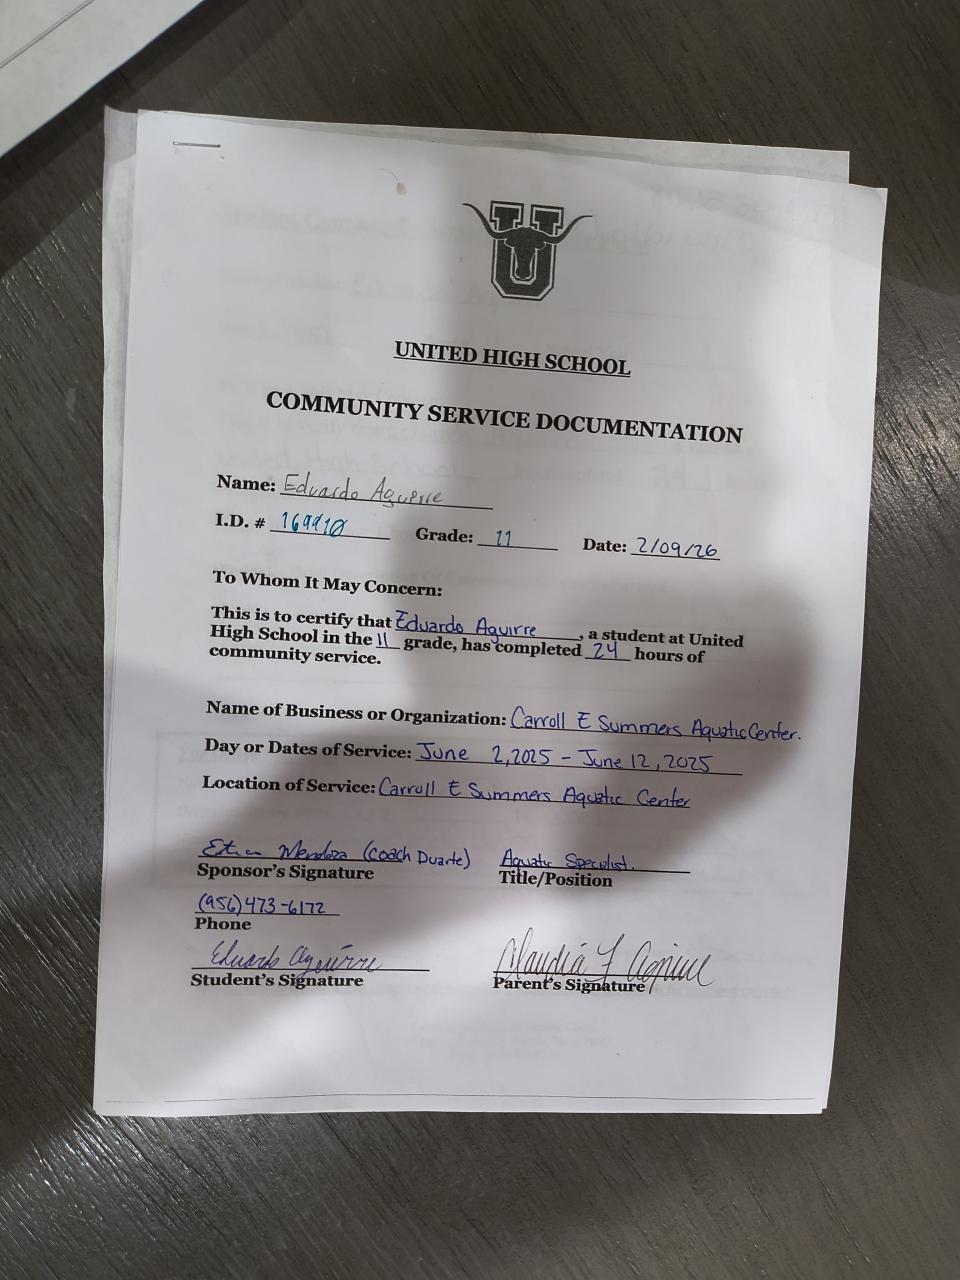 U
UNITED HIGH SCHOOL
COMMUNITY SERVICE DOCUMENTATION
Name: Eduardo Aguirre
I.D. # 169910 Grade: 11 Date: 2/09/26
To Whom It May Concern:
This is to certify that Eduardo Aguirre, a student at United
High School in the 11 grade, has completed 24 hours of
community service.
Name of Business or Organization: Carroll E Summers Aquatic Center.
Day or Dates of Service: June 2, 2025 - June 12, 2025
Location of Service: Carroll E Summers Aquatic Center
Mendoza (Coach Duarte) Aquatic Specialist.
Sponsor's Signature Title/Position
(956) 473-6172
Phone
Eduardo Aguirre Claudia Y Aguirre
Student's Signature Parent's Signature